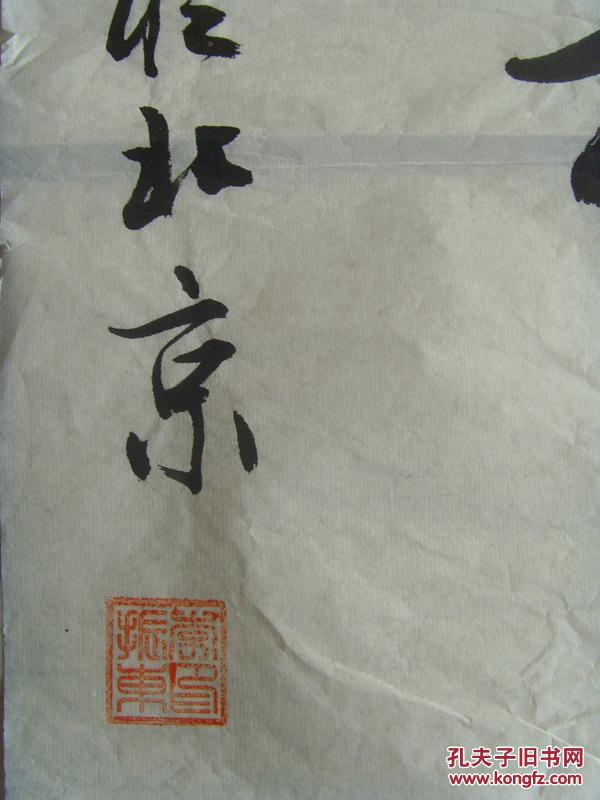 於北京
振東
孔夫子旧书网
www.kongfz.com